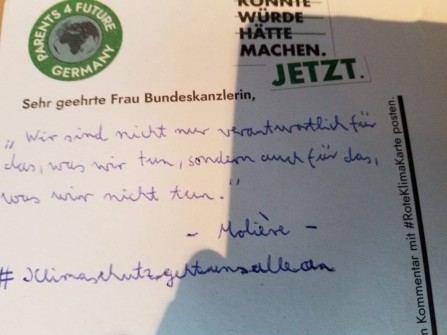 PARENTS 4 FUTURE
GERMANY
KÖNNTE
WÜRDE
HÄTTE
MACHEN.
JETZT.
Sehr geehrte Frau Bundeskanzlerin,
„Wir sind nicht nur verantwortlich für
das, was wir tun, sondern auch für das,
was wir nicht tun."
- Molière -
#Klimaschutzgehtunsallean
n Kommentar mit #RoteKlimaKarte posten.